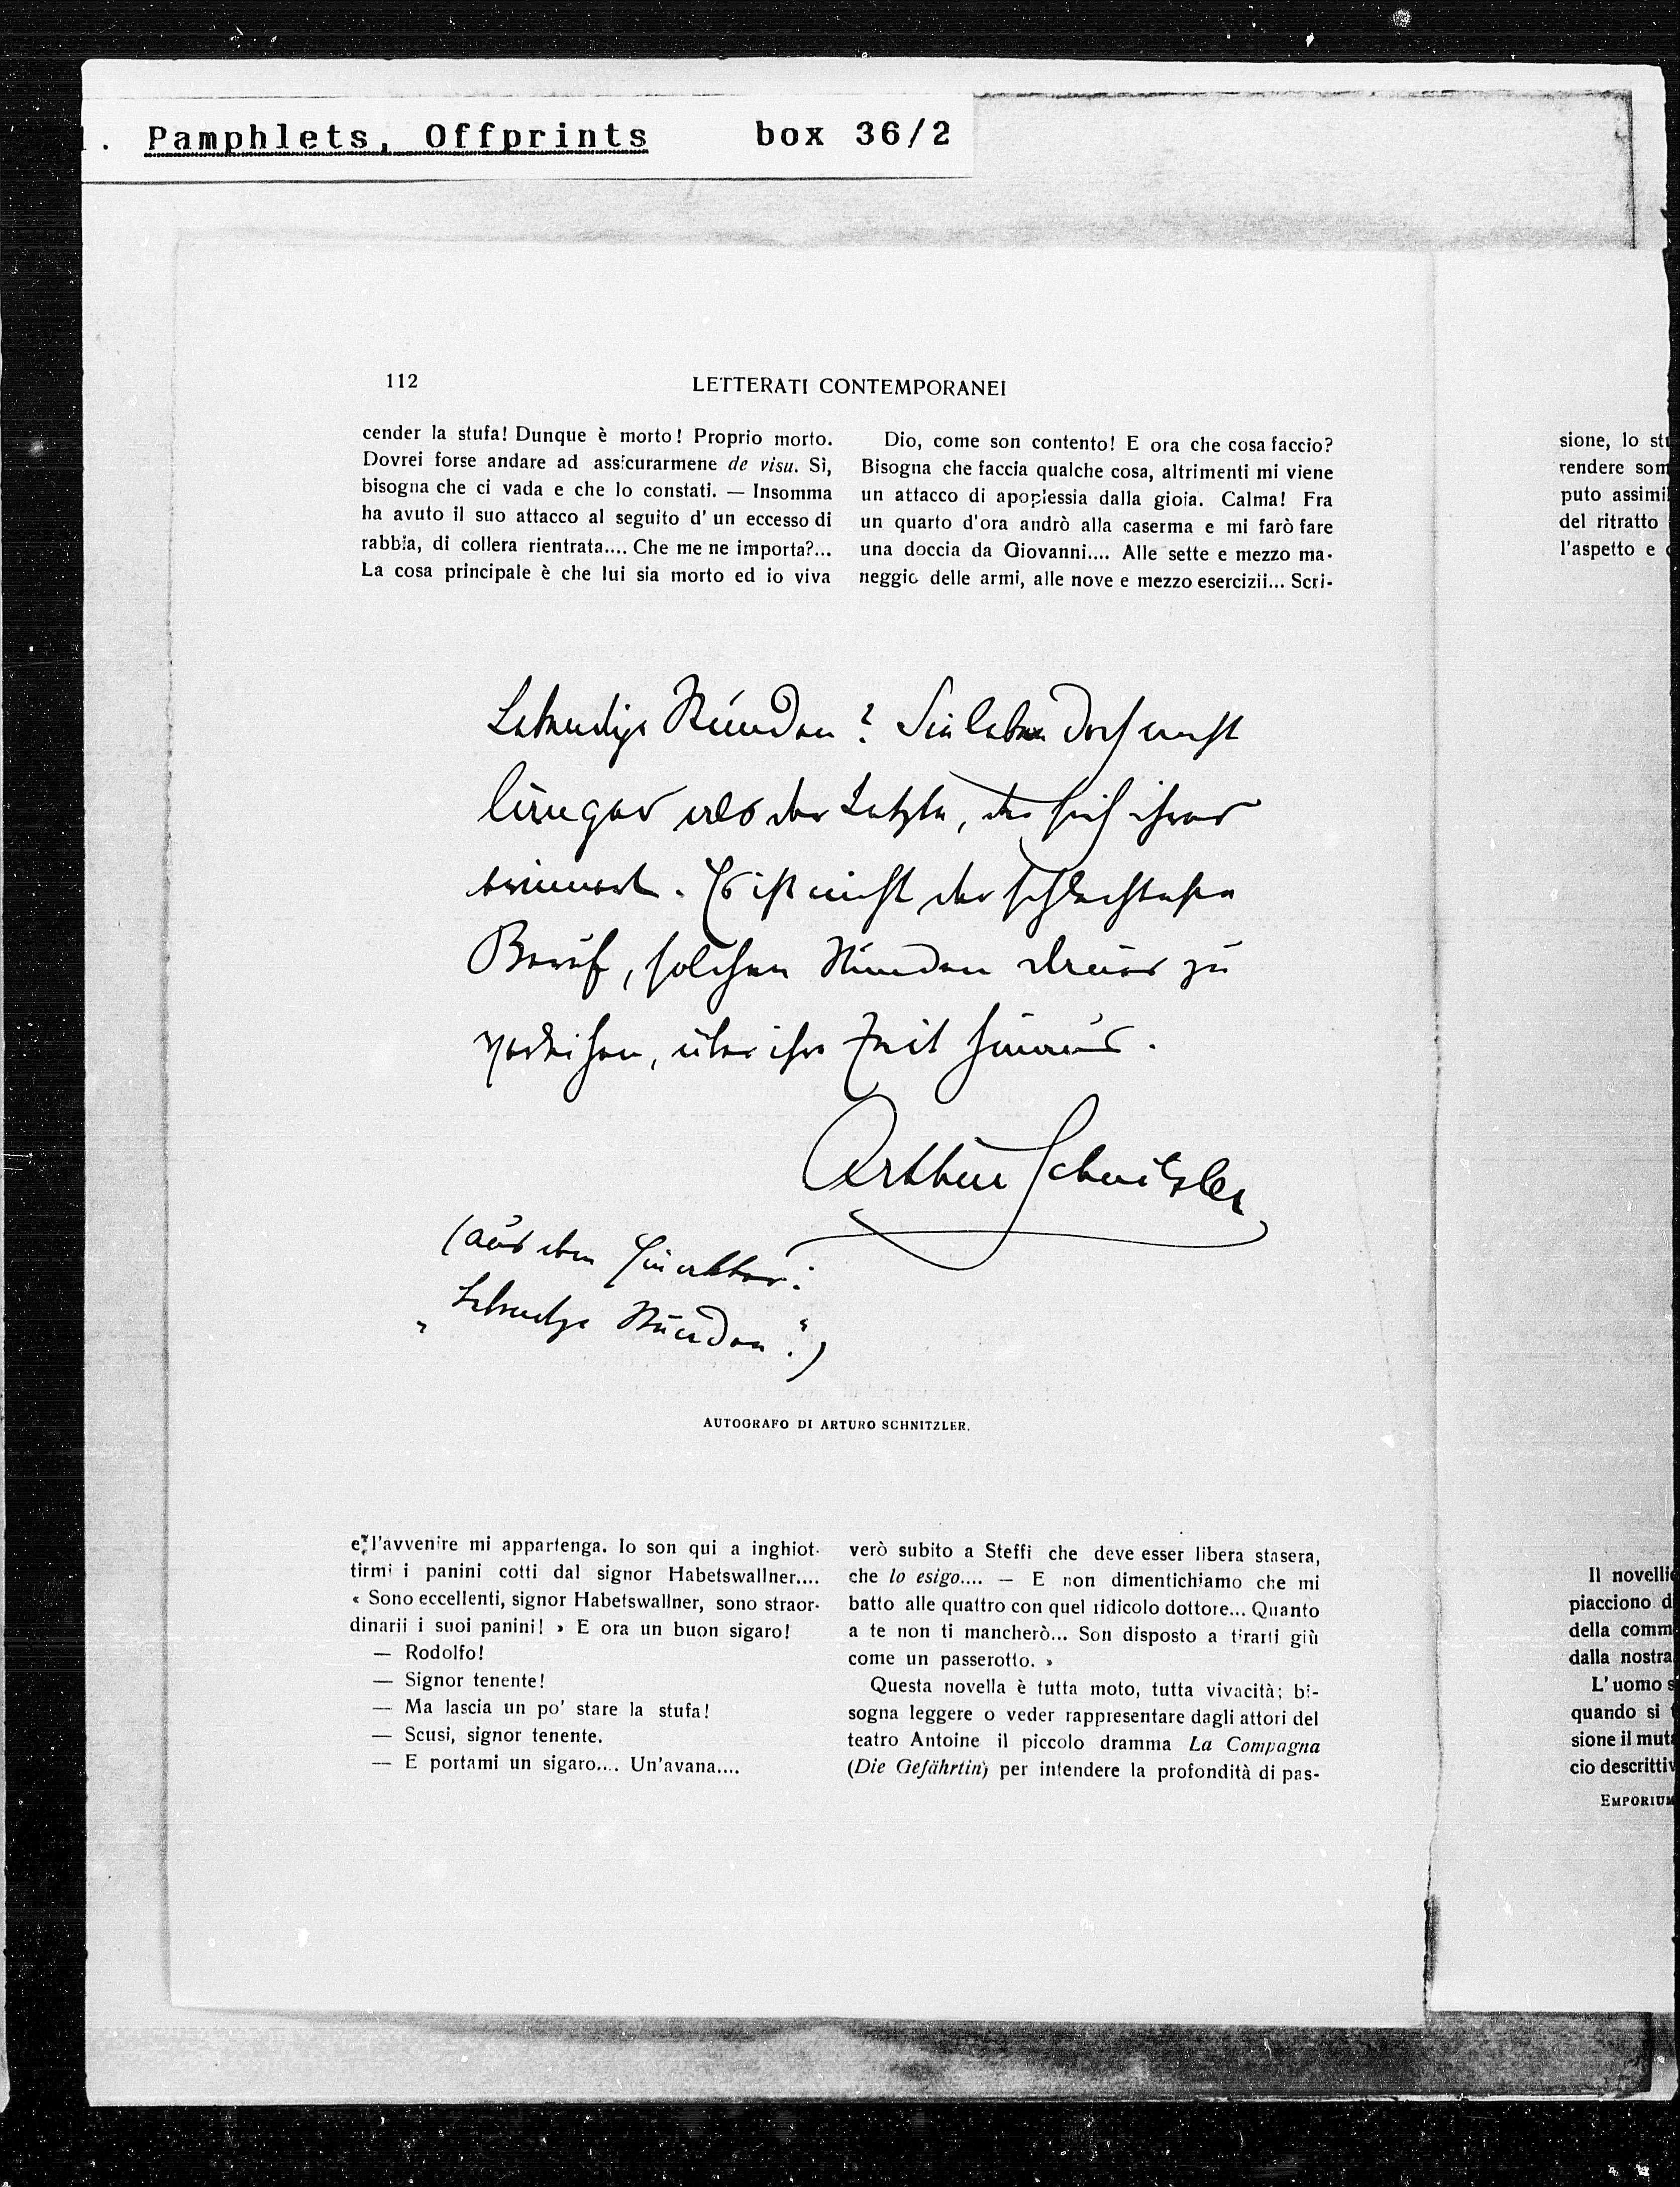 . Pamphlets, Offprints box 36/2
112
LETTERATI CONTEMPORANEI
cender la stufa! Dunque è morto! Proprio morto.
Dovrei forse andare ad assicurarmene de visu. Sì,
bisogna che ci vada e che lo constati. — Insomma
ha avuto il suo attacco al seguito d' un eccesso di
rabbia, di collera rientrata.... Che me ne importa?...
La cosa principale è che lui sia morto ed io viva
Dio, come son contento! E ora che cosa faccio?
Bisogna che faccia qualche cosa, altrimenti mi viene
un attacco di apoplessia dalla gioia. Calma! Fra
un quarto d'ora andrò alla caserma e mi farò fare
una doccia da Giovanni.... Alle sette e mezzo ma-
neggio delle armi, alle nove e mezzo esercizii... Scri-
Lebendige Stunden? Sie leben doch nicht
länger als der Letzte, der sich ihrer
erinnert. Es ist nicht der schlechteste
Beruf, solchen Stunden Dauer zu
verleihen, über ihre Zeit hinaus.
Arthur Schnitzler
(aus dem Einakter:
„Lebendige Stunden“.)
AUTOGRAFO DI ARTURO SCHNITZLER.
e l'avvenire mi appartenga. Io son qui a inghiot-
tirmi i panini cotti dal signor Habetswallner....
« Sono eccellenti, signor Habetswallner, sono straor-
dinarii i suoi panini! » E ora un buon sigaro!
— Rodolfo!
— Signor tenente!
— Ma lascia un po' stare la stufa!
— Scusi, signor tenente.
— E portami un sigaro.... Un'avana....
verò subito a Steffi che deve esser libera stasera,
che lo esigo.... — E non dimentichiamo che mi
batto alle quattro con quel ridicolo dottore... Quanto
a te non ti mancherò... Son disposto a tirarti giù
come un passerotto. »
Questa novella è tutta moto, tutta vivacità; bi-
sogna leggere o veder rappresentare dagli attori del
teatro Antoine il piccolo dramma La Compagna
(Die Gefährtin) per intendere la profondità di pas-
sione, lo
rendere som
puto assimi
del ritratto
l'aspetto e
Il novelli
piacciono d
della comm
dalla nostra
L' uomo s
quando si
sione il mut
cio descrittiv
EMPORIUM